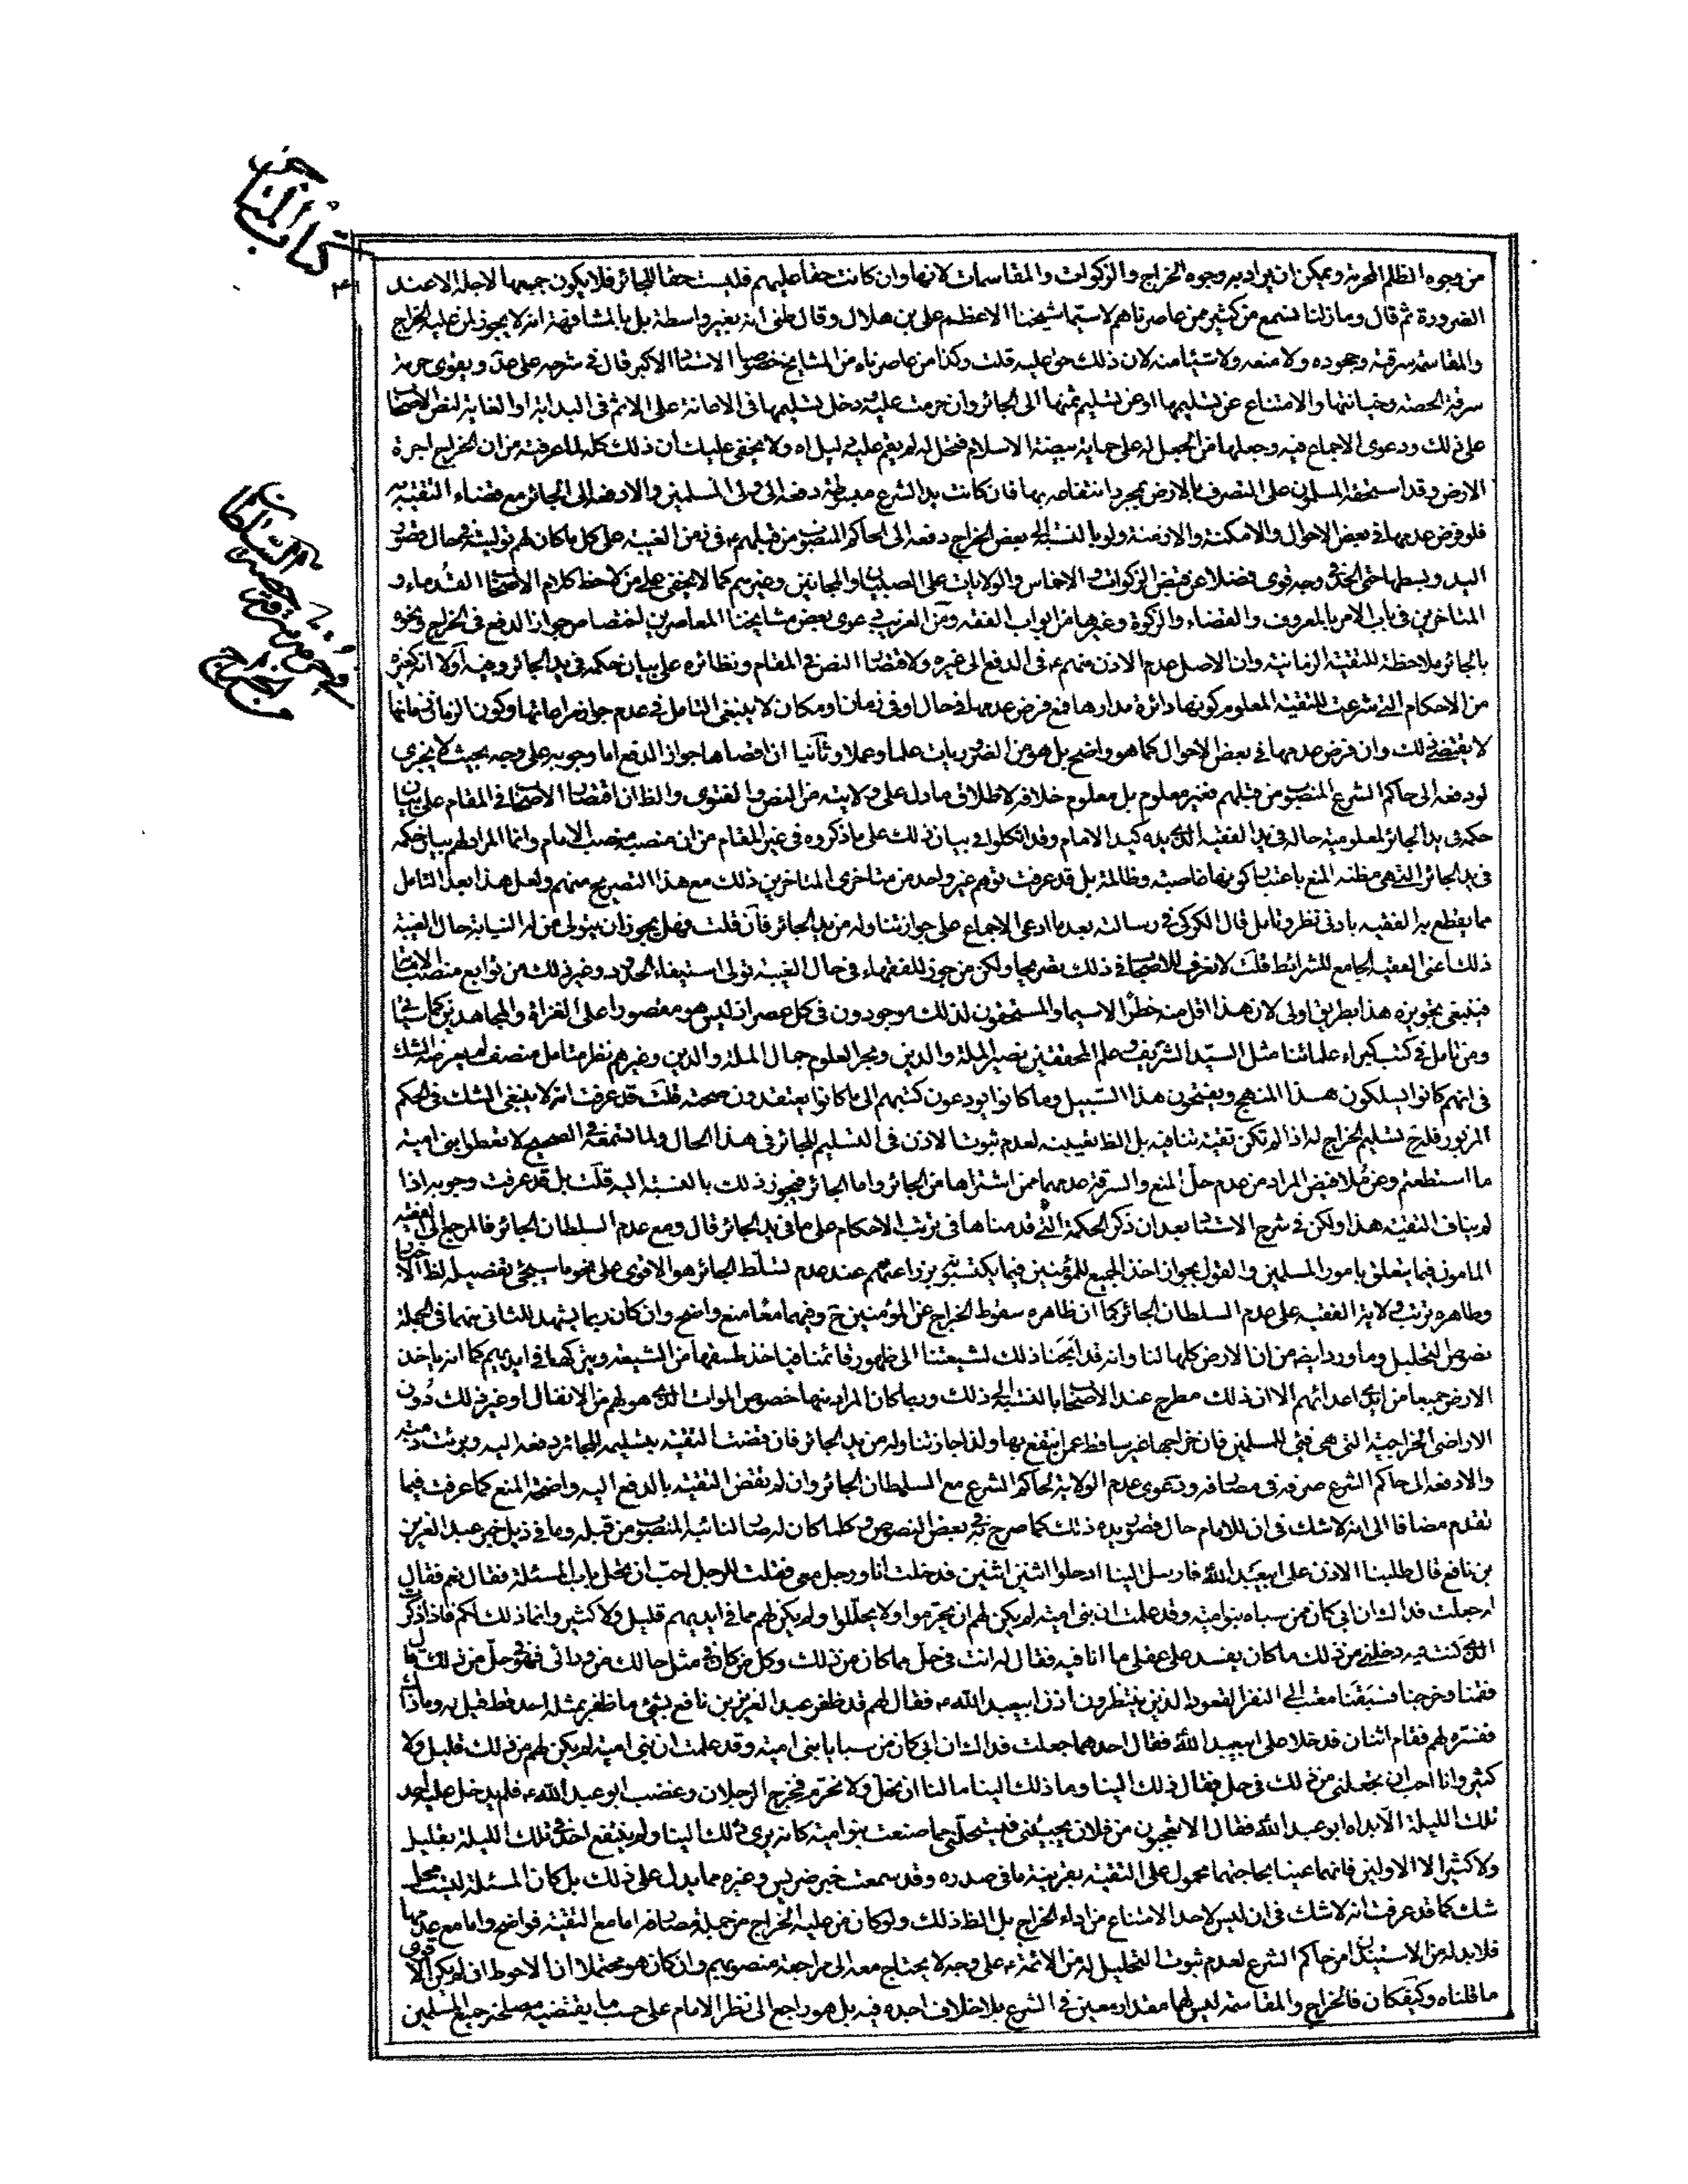 كتاب المتاجر
من وجوه الظلم المحرمة ويمكن ان يراد به وجوه الخراج والزكوات والمقاسمات لانها وان كانت حقا عليهم فليست حقا للجائر فلا يكون جمعها لاجله الا عند
الضرورة ثم قال وما زلنا نسمع من كثير ممن عاصرناهم لاسيما شيخنا الاعظم علي بن هلال وقال ظني انه بغير واسطة بل بالمشافهة انه لا يجوز لمن عليه الخراج
والمقاسمة سرقته وجحوده ولا منعه ولا شيئا منه لان ذلك حق عليه قلت وكذا من عاصرناه من المشايخ خصوصا الاستاد الاكبر قال في شرحه على عد ويقوى حرمة
سرقة الحصة وخيانتها والامتناع عن تسليمها او عن تسليم ثمنها الى الجائر وان حرمت عليه دخل تسليمها في الاعانة على الاثم في البداية او الغاية لنص الاصحاب
على ذلك ودعوى الاجماع فيه وجعلها من الجعل له على حماية بيضة الاسلام فتحل له لم يقم عليه دليل اه ولا يخفى عليك ان ذلك كله لما عرفته من ان الخراج اجرة
الارض وقد استحقه المسلمون على المتصرف بالارض بمجرد انتفاعه بها فان كانت يد الشرع مبسوطة دفعه الى ولي المسلمين والا دفعه الى الجائر مع قضاء التقية به
فلو فرض عدمها في بعض الاحوال والامكنة والازمنة ولو بالنسبة الى بعض الخراج دفعه الى الحاكم المنصوب من قبلهم ع في زمن الغيبة على كل ما كان لهم توليته بحال قصور
اليد وبسطها حتى الحد في وجه قوي فضلا عن قبض الزكوات والاخماس والولايات على الصبيان والمجانين وغيرهم كما لا يخفى على من لاحظ كلام الاصحاب القدماء و
المتاخرين في باب الامر بالمعروف والقضاء والزكوة وغيرها من ابواب الفقه ومن الغريب دعوى بعض مشايخنا المعاصرين اختصاص جواز الدفع في الخراج ونحوه
بالجائر ملاحظة للتقية الزمانية وان الاصل عدم الاذن منهم ع في الدفع الى غيره ولاقتصار النص في المقام ونظائره على بيان حكمه في يد الجائر وفيه اولا انه كغيره
من الاحكام التي شرعت للتقية المعلوم كونها دائرة مدارها فمع فرض عدمها في حال او في زمان او مكان لا ينبغي التامل في عدم جواز مراعاتها وكون الزمان زمانها
لا يقتضي ذلك وان فرض عدمها في بعض الاحوال كما هو واضح بل هو من الضروريات علما وعملا وثانيا ان اقصاها جواز الدفع اما وجوبه على وجه بحيث لا يجزي
لو دفعه الى حاكم الشرع المنصوب من قبلهم فغير معلوم بل معلوم خلافه لاطلاق ما دل على ولايته من النص والفتوى والظ ان اقتصار الاصحاب في المقام على بيان
حكمه في يد الجائر لمعلومية حاله في يد الفقيه الذي يده كيد الامام وقد اتكلوا في بيان ذلك على ما ذكروه في غير المقام من ان منصبه منصب الامام وانما المراد لهم بيان حكمه
في يد الجائر التي هي مظنة المنع باعتبار كونها غاصبة وظالمة بل قد عرفت توهم غير واحد من متاخري المتاخرين ذلك مع هذا التصريح منهم ولعل هذا بعد التامل
مما يقطع به الفقيه بادنى نظر وتامل قال الكركي في رسالته بعد ما ادعى الاجماع على جواز تناوله من يد الجائر فان قلت فهل يجوز ان يتولى من له النيابة حال الغيبة
ذلك اعني الفقيه الجامع للشرائط قلت لا نعرف للاصحاب في ذلك تصريحا ولكن من جوز للفقهاء في حال الغيبة تولي استيفاء الحدود وغير ذلك من توابع منصب الامامة
فينبغي تجويزه هذا بطريق اولى لان هذا اقل منه خطرا لاسيما والمستحقون لذلك موجودون في كل عصر اذ ليس هو مقصورا على الغزاة والمجاهدين كما سياتي
ومن تامل في كتب كبراء علمائنا مثل السيد الشريف وعلم المحققين نصير الملة والدين وبحر العلوم جمال الملة والدين وغيرهم نظر متامل منصف لم يعرضه الشك
في انهم كانوا يسلكون هذا المنهج ويفتحون هذا السبيل وما كانوا يودعون كتبهم الى ما كانوا يعتقدون صحته قلت قد عرفت انه لا ينبغي الشك في الحكم
المزبور فله ح تسليم الخراج له اذا لم تكن تقية تنافيه بل الظ تعيينه لعدم ثبوت الاذن في التسليم للجائر في هذا الحال ولما سمعته في الصحيح لا تعطوا بني امية
ما استطعتم وعن ملا فيض المراد من عدم حل المنع والسرقة عدمهما ممن اشتراها من الجائر واما الجائر فيجوز ذلك بالنسبة اليه قلت بل قد عرفت وجوبه اذا
لم يناف التقية هذا ولكن في شرح الاستاد بعد ان ذكر الحكمة التي قدمناها في ترتب الاحكام على ما في يد الجائر قال ومع عدم السلطان الجائر فالمرجع الى الفقيه
المامون فيما يتعلق بامور المسلمين والقول بجواز اخذ الجميع للمؤمنين فيما يكتسبونه بزراعتهم عند عدم تسلط الجائر هو الاقوى على نحو ما سيجئ تفصيله لظ الاخبار
وظاهره ترتب ولاية الفقيه على عدم السلطان الجائر كما ان ظاهره سقوط الخراج عن المؤمنين ح وفيهما معا منع واضح وان كان ربما يشهد للثاني منهما في الجملة
نصوص التحليل وما ورد ايضه من ان الارض كلها لنا وانه قد ابحنا ذلك لشيعتنا الى ظهور قائمنا فياخذ طسقها من الشيعة ويتركها في ايديهم كما انه ياخذ
الارض جميعا من ايدي اعدائهم الا ان ذلك مطرح عند الاصحاب بالنسبة الى ذلك وربما كان المراد منها خصوص الموات الذي هو لهم من الانفال او غير ذلك دون
الاراضي الخراجية التي هي فيئ للمسلمين فان خراجها غير ساقط عمن ينتفع بها ولذا جاز تناوله من يد الجائر فان قضت التقية بتسليمه للجائر دفعه اليه وبرئت ذمته
والا دفعه الى حاكم الشرع صرفه في مصارفه ودعوى عدم الولاية لحاكم الشرع مع السلطان الجائر وان لم تقض التقية بالدفع اليه واضحة المنع كما عرفت فيما
تقدم مضافا الى انه لا شك في ان للامام حال قصور يده ذلك كما صرح به في بعض النصوص وكلما كان له صار لنائبه المنصوب من قبله وما في ذيل خبر عبد العزيز
بن نافع قال طلبنا الاذن على ابي عبد الله فارسل الينا ادخلوا اثنين اثنين فدخلت انا ورجل معي فقلت للرجل احب ان تحل بالمسئلة فقال نعم فقال
له جعلت فداك ان ابي كان ممن سباه بنو امية وقد علمت ان بني امية لم يكن لهم ان يحرموا ولا يحللوا ولم يكن لهم مما في ايديهم قليل ولا كثير وانما ذلك لكم فاذا ذكرت
الذي كنت فيه دخلني من ذلك ما كان يفسد علي عقلي ما انا فيه فقال له انت في حل مما كان من ذلك وكل من كان في مثل حالك من ورائي فهو في حل من ذلك قال
فقمنا وخرجنا فسبقنا معتب الى النفر القعود الذين ينتظرون اذن ابي عبد الله ع فقال لهم قد ظفر عبد العزيز بن نافع بشئ ما ظفر بمثله احد قط قيل له وما ذاك
ففسره لهم فقام اثنان فدخلا على ابي عبد الله فقال احدهما جعلت فداك ان ابي كان من سبايا بني امية وقد علمت ان بني امية لم يكن لهم من ذلك قليل ولا
كثير وانا احب ان تجعلني من ذلك في حل فقال ذلك الينا وما ذلك الينا ما لنا ان نحل ولا نحرم فخرج الرجلان وغضب ابو عبد الله ع فلم يدخل عليه احد
تلك الليلة الا بداه ابو عبد الله فقال الا تعجبون من فلان يجيئني فيستحلني مما صنعت بنو امية كانه يرى ذلك الينا ولم ينتفع احد في تلك الليلة بقليل
ولا كثير الا الاولين فانهما عنيا بحاجتهما محمول على التقية بقرينة ما في صدره وقد سمعت خبر ضريس وغيره مما يدل على ذلك بل كان المسئلة ليست محل
شك كما قد عرفت انه لا شك في ان ليس لاحد الامتناع من اداء الخراج بل الظ ذلك ولو كان من عليه الخراج من جملة مصارفه اما مع التقية فواضح واما مع عدمها
فلا بد له من الاستيذان من حاكم الشرع لعدم ثبوت التحليل له من الائمة ع على وجه لا يحتاج معه الى مراجعة منصوبهم وان كان هو محتملا الا ان الاحوط ان لم يكن الاقوى
ما قلناه وكيفكان فالخراج والمقاسمة ليس لهما مقدار معين في الشرع بلا خلاف اجده فيه بل هو راجع الى نظر الامام على حسب ما يقتضيه مصلحة جميع المسلمين